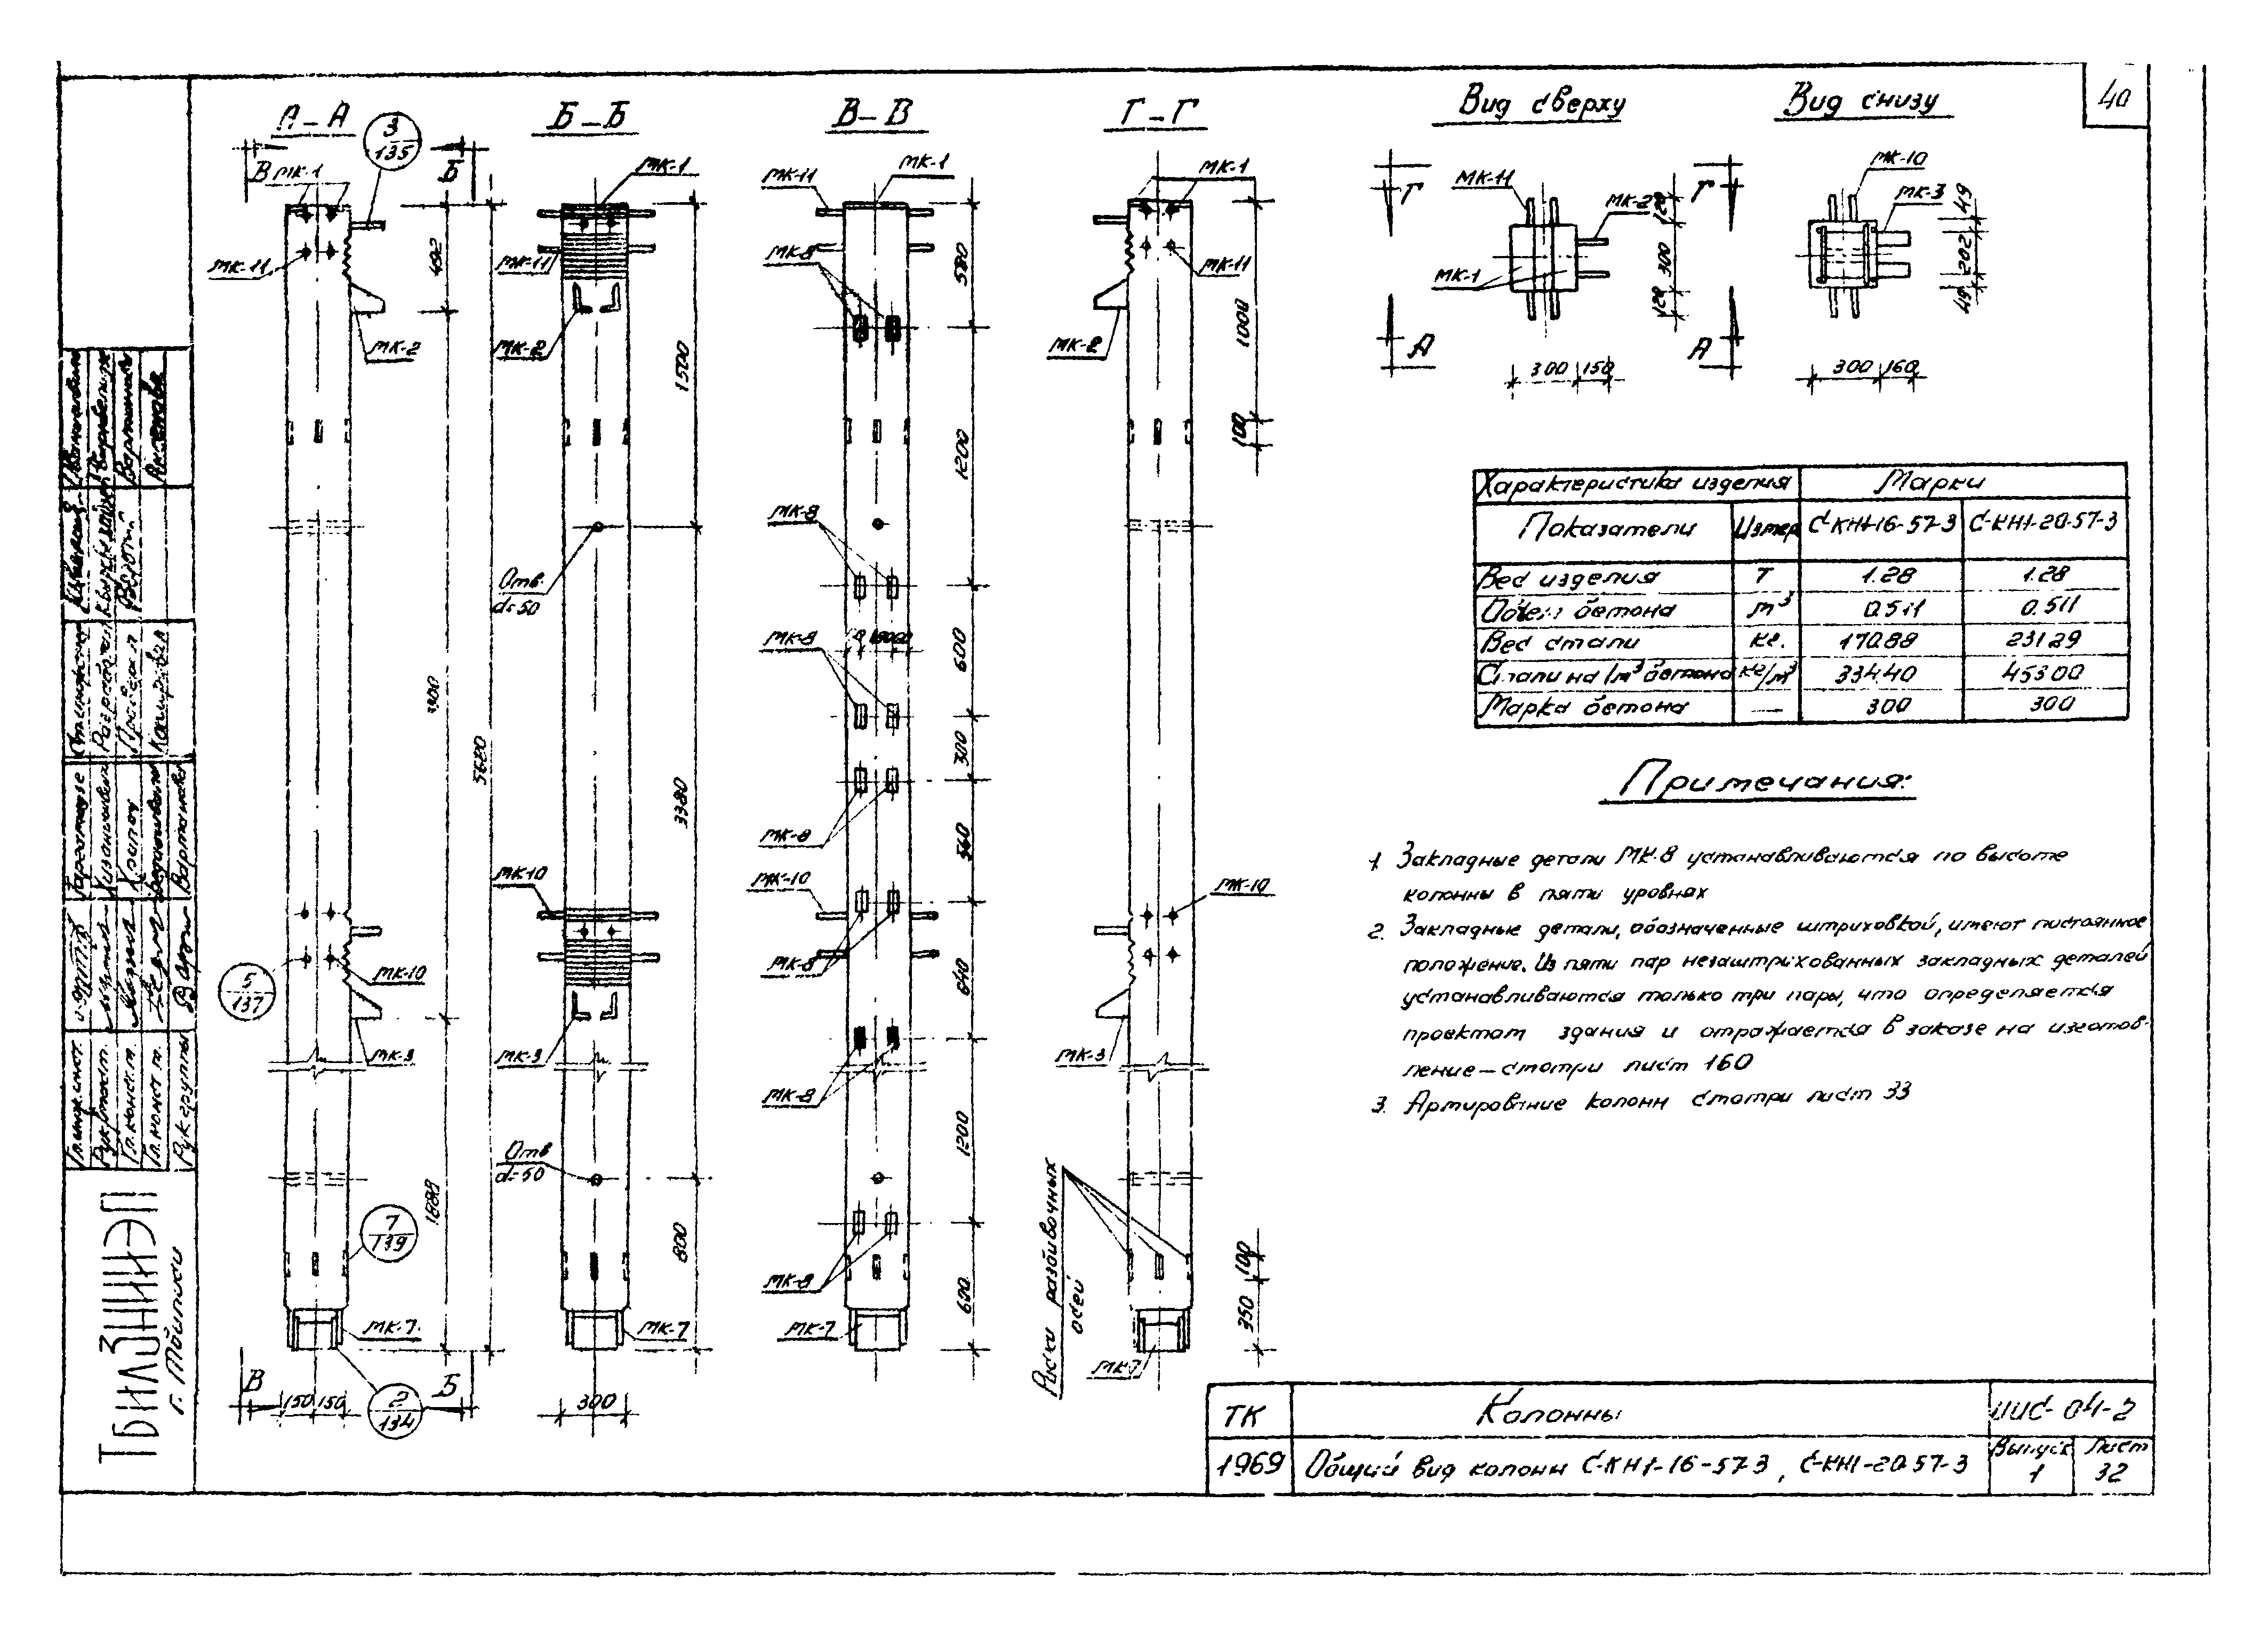 40
А–А
Б–Б
В–В
Г–Г
Вид сверху
Вид снизу
3
135
В
Б
МК-1
МК-11
МК-2
492
3900
5620
5
137
МК-10
МК-3
1888
7
139
МК-7
В
Б
150 150
2
134
МК-1
МК-11
МК-2
1500
Отв.
d=50
3380
МК-10
МК-3
Отв
d=50
800
МК-7
300
МК-11
МК-1
МК-8
580
1200
МК-8
МК-8
600
300
МК-8
560
МК-10
МК-8
640
МК-8
1200
МК-8
600
МК-7
МК-1
МК-11
МК-2
1000
100
МК-10
МК-3
Риски разбивочных
осей
100
350
МК-7
Г
МК-11
МК-2
МК-1
120
300
120
300 150
А
Г
МК-10
МК-3
49
202
49
300 160
А
Характеристика изделия Марки
Показатели Измер С-КН1-16-57-3 С-КН1-20-57-3
Вес изделия т 1.28 1.28
Объем бетона м³ 0.511 0.511
Вес стали кг. 170.88 231.29
Стали на 1м³ бетона кг/м³ 334.40 453.00
Марка бетона — 300 300
Примечания:
1. Закладные детали МК-8 устанавливаются по высоте
колонны в пяти уровнях
2. Закладные детали, обозначенные штриховкой, имеют постоянное
положение. Из пяти пар незаштрихованных закладных деталей
устанавливаются только три пары, что определяется
проектом здания и отражается в заказе на изготов-
ление – смотри лист 160
3. Армирование колонн смотри лист 33
ТК Колонны ИИС-04-2
1969 Общий вид колонн С-КН1-16-57-3, С-КН1-20-57-3
Выпуск 1
Лист 32
ТбилЗНИИЭП
г. Тбилиси
Гл. инж. инст.
Рук. маст.
Гл. конст. м.
Рук. группы
Вартанова
Аксенова